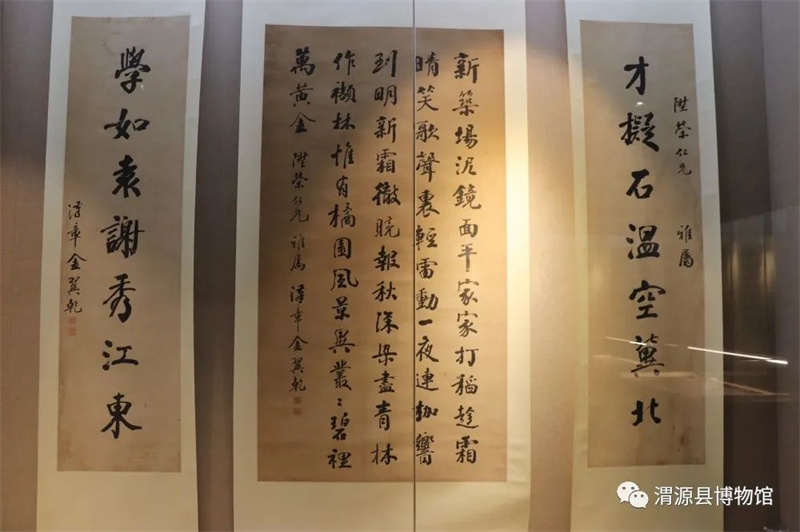 才擬石溫空冀北
陞榮仁兄 雅屬
新築場泥鏡面平家家打稻趁霜
晴笑歌聲裏輕雷動一夜連枷響
到明新霜徹曉報秋深染盡青林
作纈林惟有橘園風景異叢〻碧裡
萬黃金 陞榮仁兄 雅屬 漢章金翼乾
學如袁謝秀江東
漢章金翼乾
渭源县博物馆